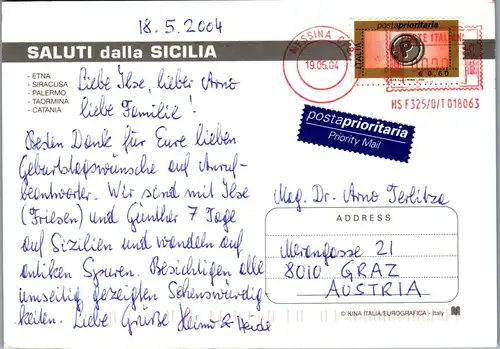 18.5.2004
SALUTI dalla SICILIA
- ETNA
- SIRACUSA
- PALERMO
- TAORMINA
- CATANIA
Liebe Ilse, lieber Arno
liebe Familie!
Besten Dank für Eure lieben
Geburtstagswünsche auf Anruf-
beantworter. Wir sind mit Ilse
(Friesen) und Günther 7 Tage
auf Sizilien und wandeln auf
antiken Spuren. Besichtigen alle
umseitig gezeigten Sehenswürdig-
keiten. Liebe Grüße Heimo & Heidi
MESSINA
19.05.04
POSTE ITALIANE
HS F325/0/T 018063
ITALIA
postaprioritaria
P
€ 0,60
postaprioritaria
Priority Mail
Mag. Dr. Arno Terlitza
ADDRESS
Merangasse 21
8010 GRAZ
AUSTRIA
© KINA ITALIA/EUROGRAFICA - Italy